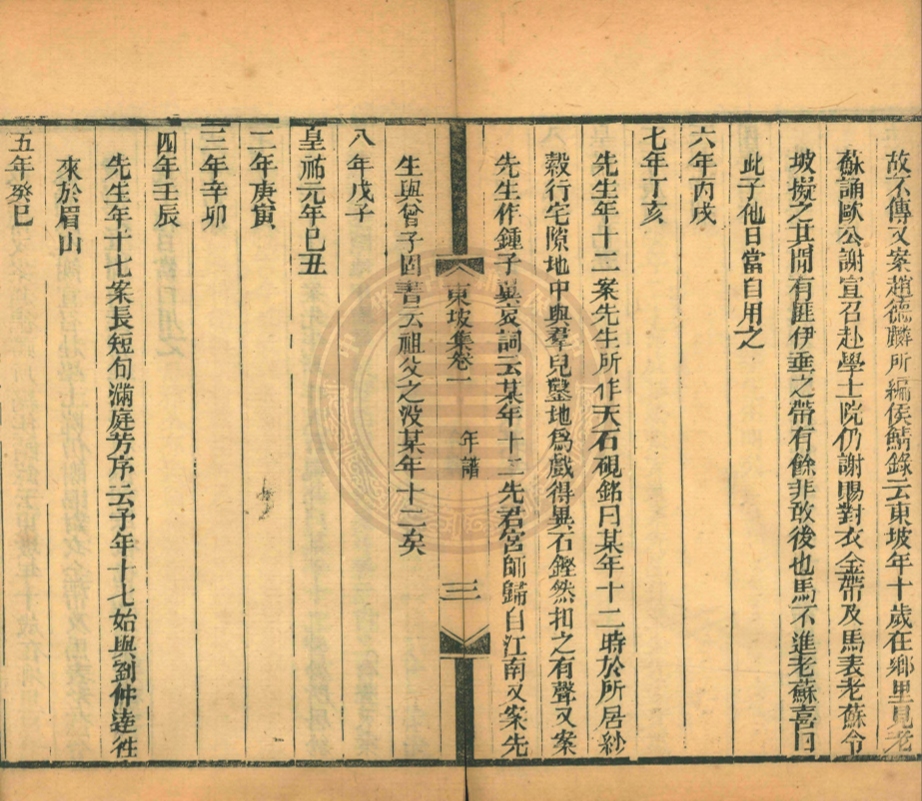 故不傳又案趙德麟所編侯鯖錄云東坡年十歲在鄉里見老
蘇誦歐公謝宣召赴學士院仍謝賜對衣金帶及馬表老蘇令
坡擬之其間有匪伊垂之帶有餘非敢後也馬不進老蘇喜曰
此子他日當自用之
六年丙戌
七年丁亥
先生年十二案先生所作天石硯銘曰某年十二時於所居紗
縠行宅隙地中與羣兒鑿地爲戲得異石鏗然扣之有聲又案
先生作鍾子翼哀詞云某年十二先君宮師歸自江南又案先
東坡集卷一 年譜 三
生與曾子固書云祖父之没某年十二矣
八年戊子
皇祐元年己丑
二年庚寅
三年辛卯
四年壬辰
先生年十七案長短句滿庭芳序云予年十七始與劉仲達徃
來於眉山
五年癸巳